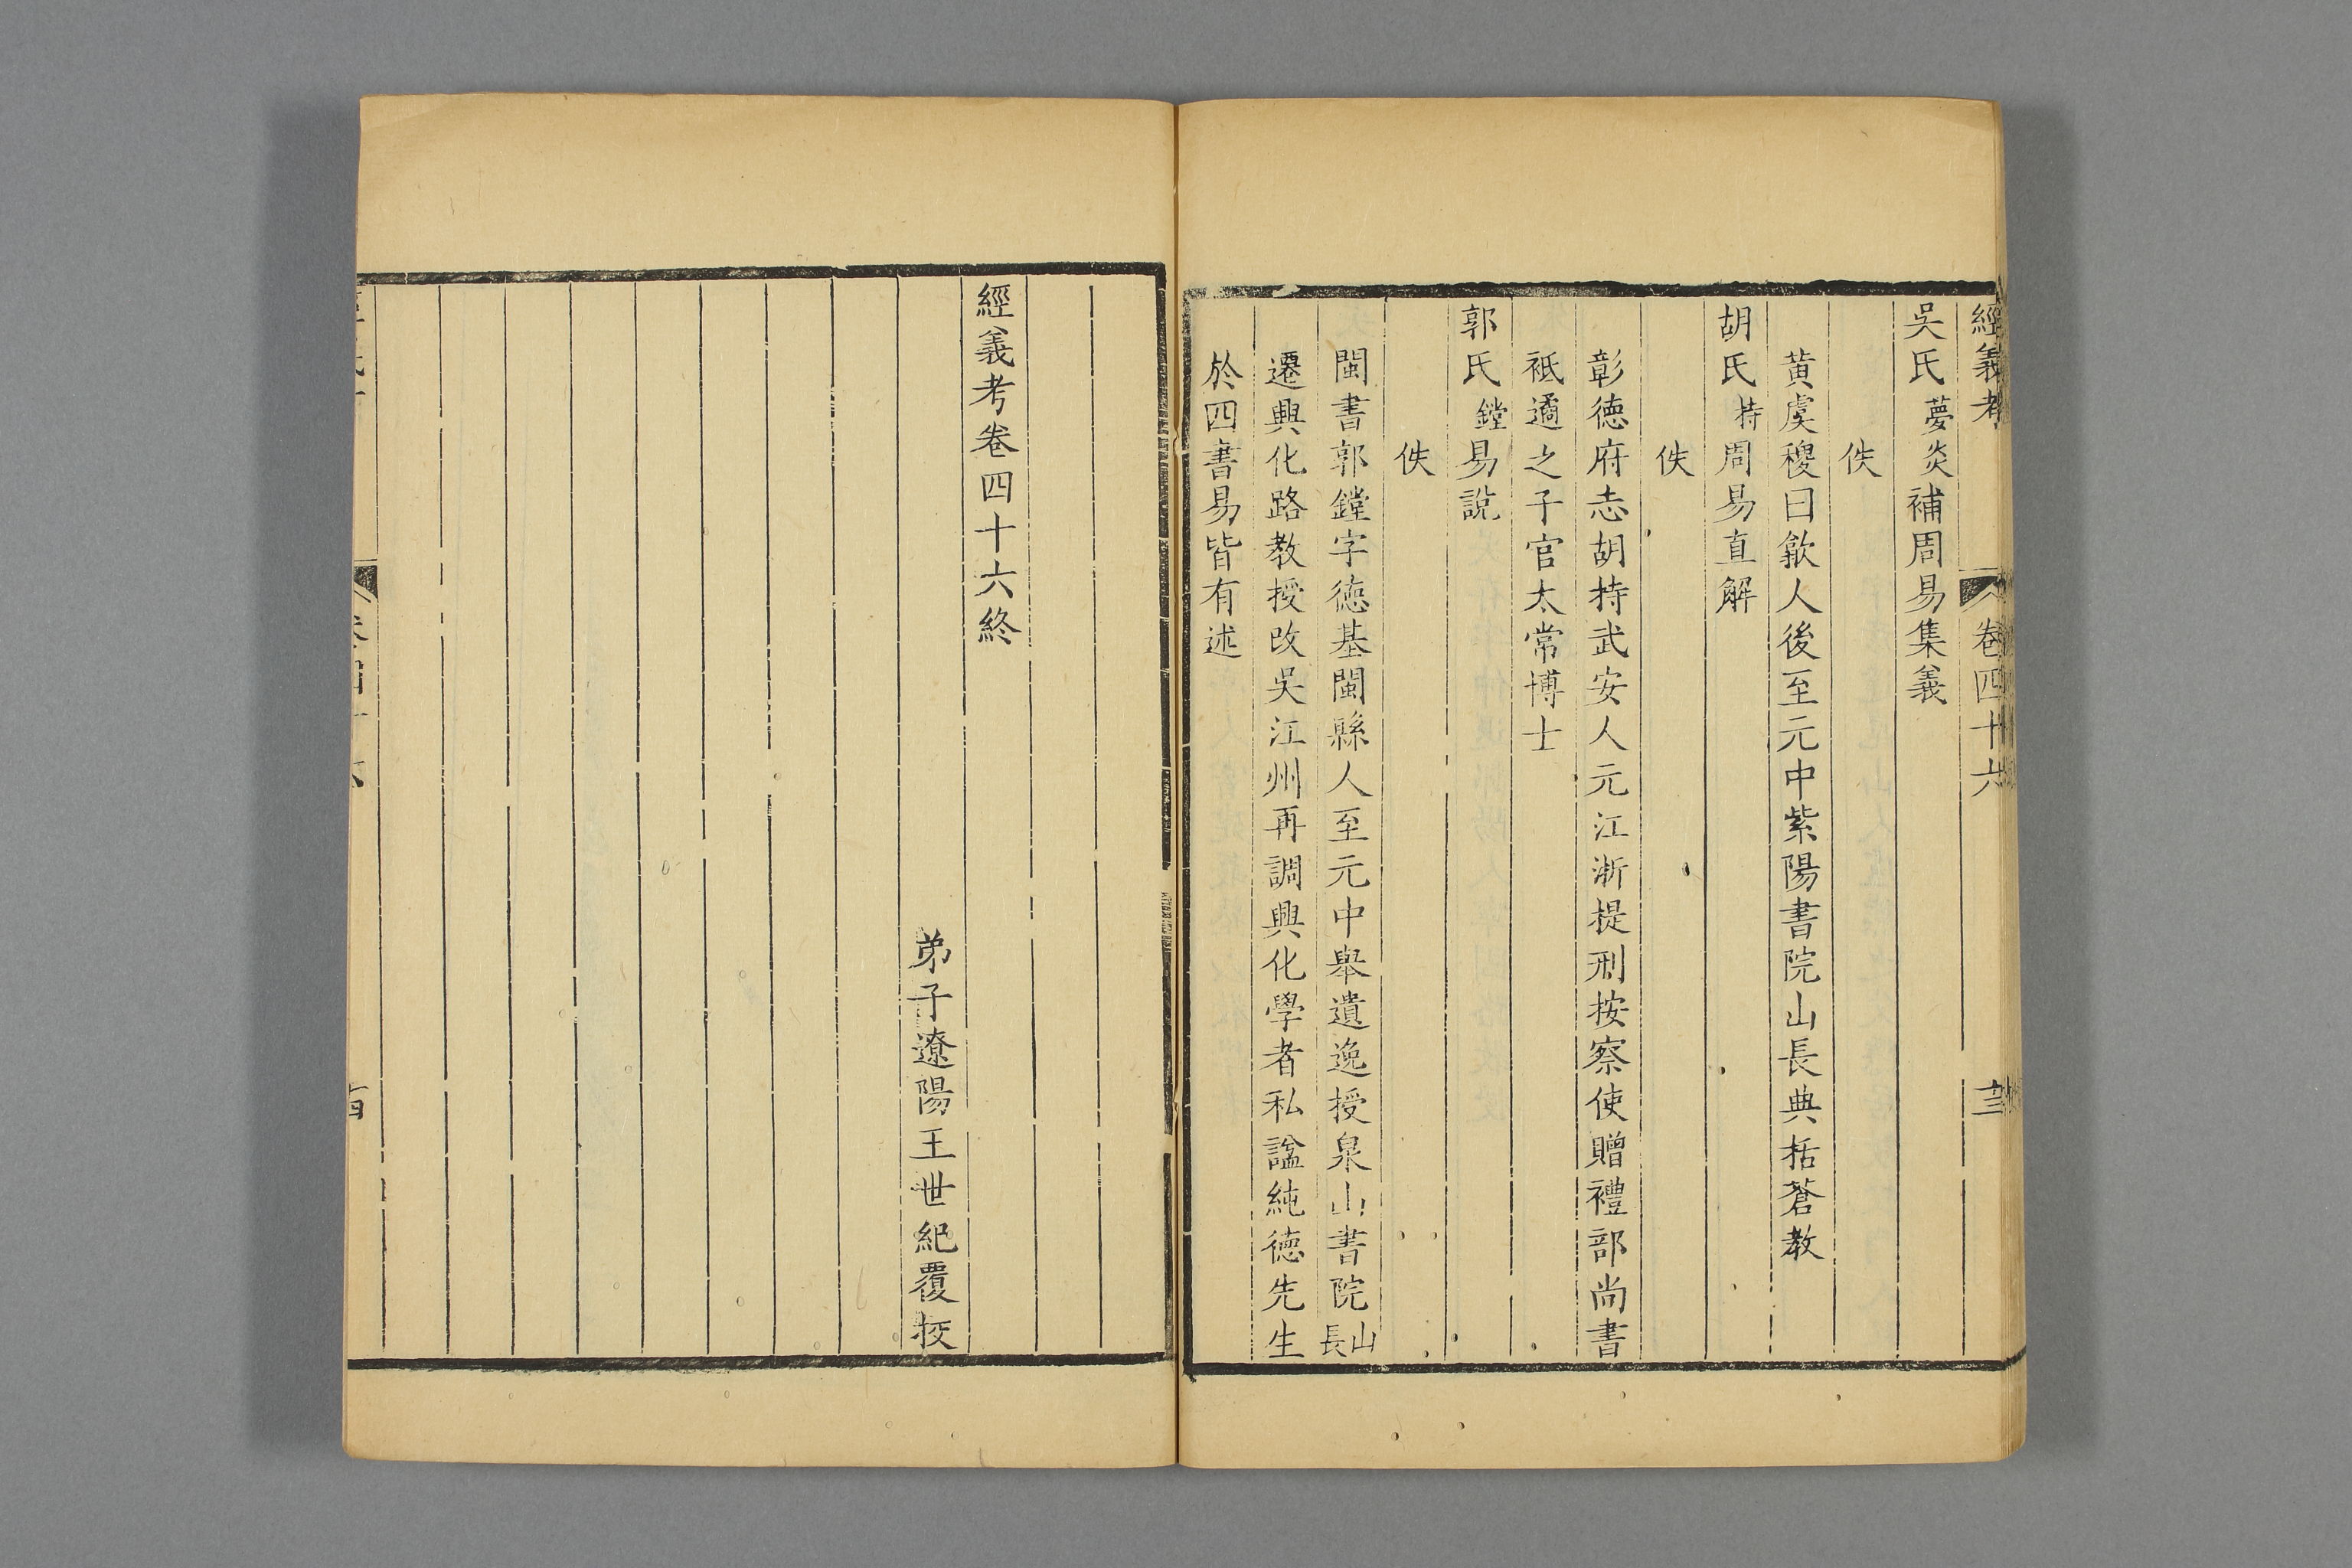 經義考 卷四十六 十三
吳氏夢炎補周易集義
佚
黃虞稷曰歙人後至元中紫陽書院山長典括蒼教
胡氏持周易直解
佚
彰德府志胡持武安人元江淅提刑按察使贈禮部尚書
祗遹之子官太常博士
郭氏鏜易說
佚
閩書郭鏜字德基閩縣人至元中舉遺逸授泉山書院山長
遷興化路教授改吳江州再調興化學者私謚純德先生
於四書易皆有述
經義考卷四十六終
弟子遼陽王世紀覆挍